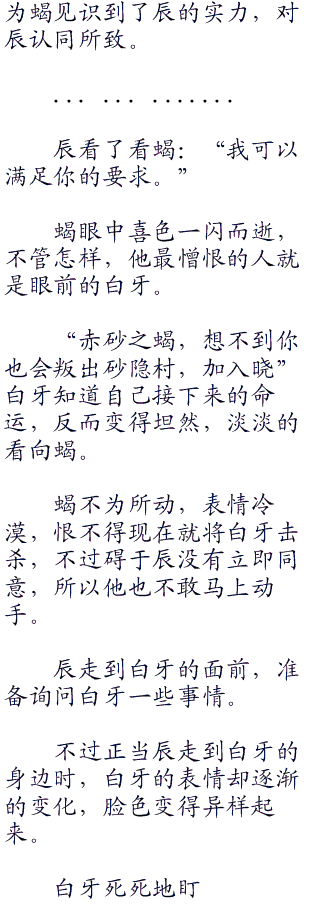 为蝎见识到了辰的实力，对
辰认同所致。
... ... .......
辰看了看蝎：“我可以
满足你的要求。”
蝎眼中喜色一闪而逝，
不管怎样，他最憎恨的人就
是眼前的白牙。
“赤砂之蝎，想不到你
也会叛出砂隐村，加入晓”
白牙知道自己接下来的命
运，反而变得坦然，淡淡的
看向蝎。
蝎不为所动，表情冷
漠，恨不得现在就将白牙击
杀，不过碍于辰没有立即同
意，所以他也不敢马上动
手。
辰走到白牙的面前，准
备询问白牙一些事情。
不过正当辰走到白牙的
身边时，白牙的表情却逐渐
的变化，脸色变得异样起
来。
白牙死死地盯